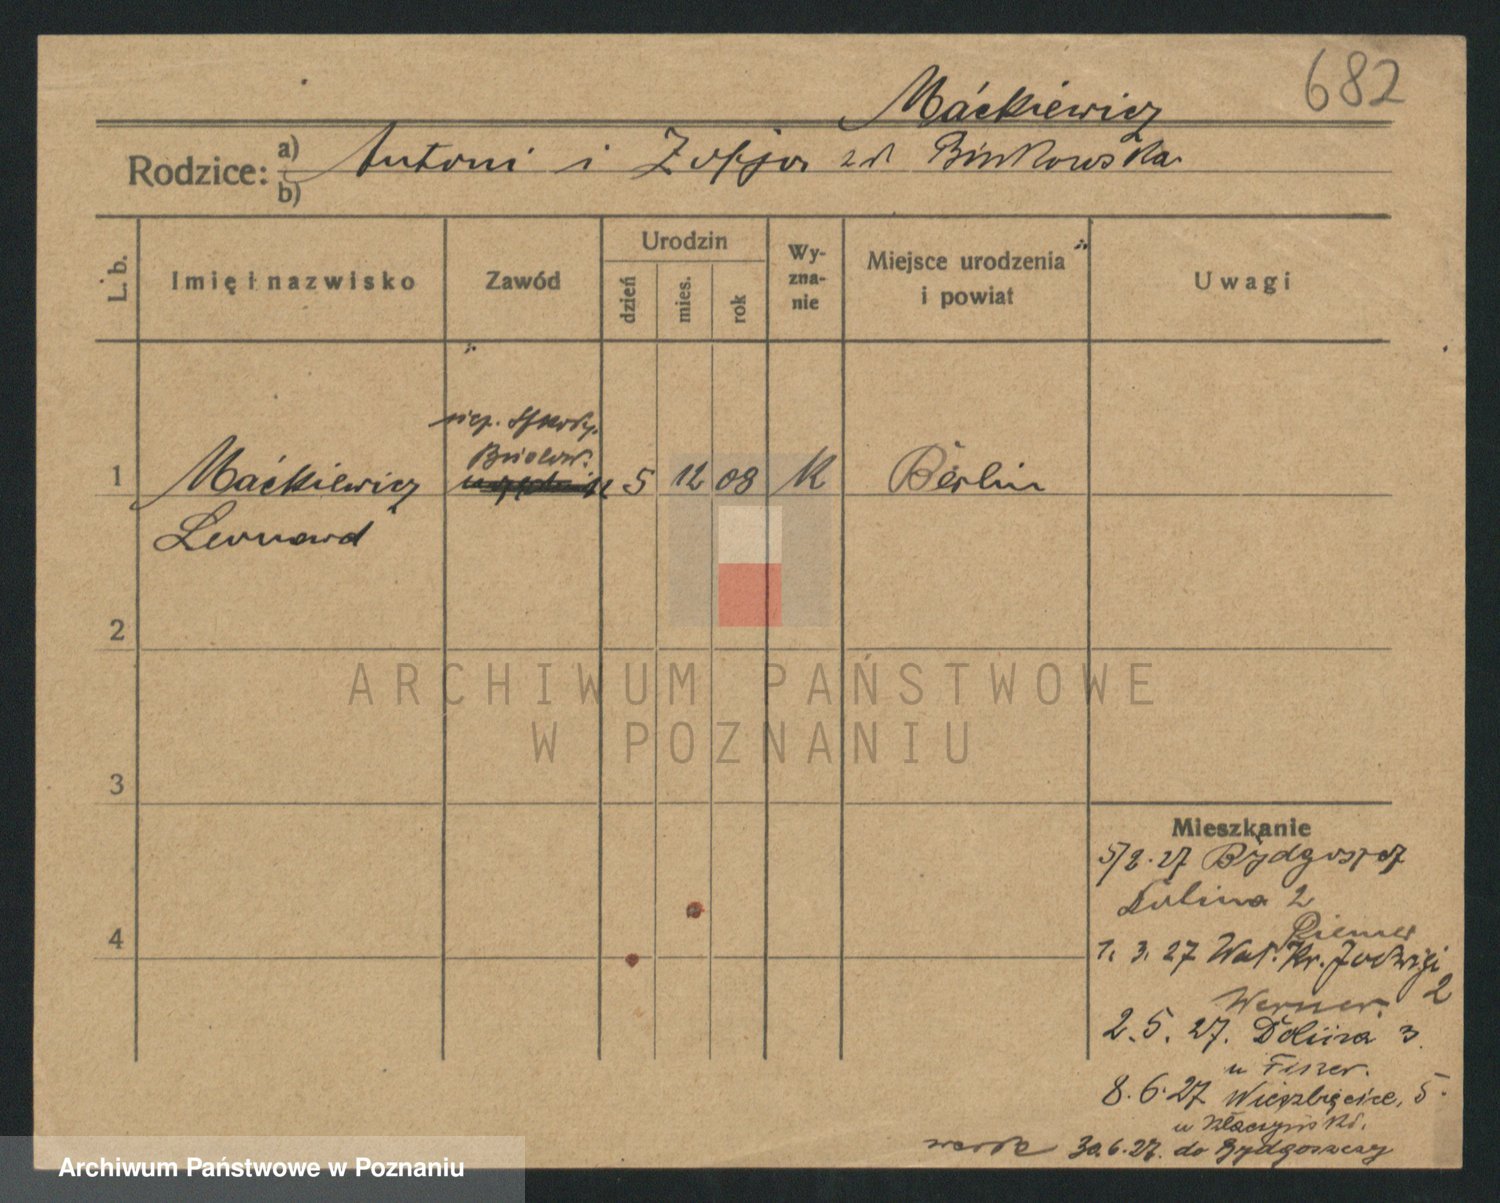 682
Maćkiewicz
Rodzice: a) Antoni i Zofja zd Binkowska
b)
L. b.
Imię i nazwisko
Zawód
Urodzin
dzień
mies.
rok
Wy-
zna-
nie
Miejsce urodzenia
i powiat
Uwagi
1
Maćkiewicz
Leonard
5
12
08
K
Berlin
2
3
4
Mieszkanie
5/2.27 Bydgoszcz
Dolina 2
Riemer
1. 3. 27 Wał. Kr. Jadwigi
2
Werner.
2. 5. 27. Dolina 3
u Fiszer.
8. 6. 27 Wierzbięcice, 5.
u
30.6.27. do Bydgoszczy
ARCHIWUM PAŃSTWOWE
W POZNANIU
Archiwum Państwowe w Poznaniu